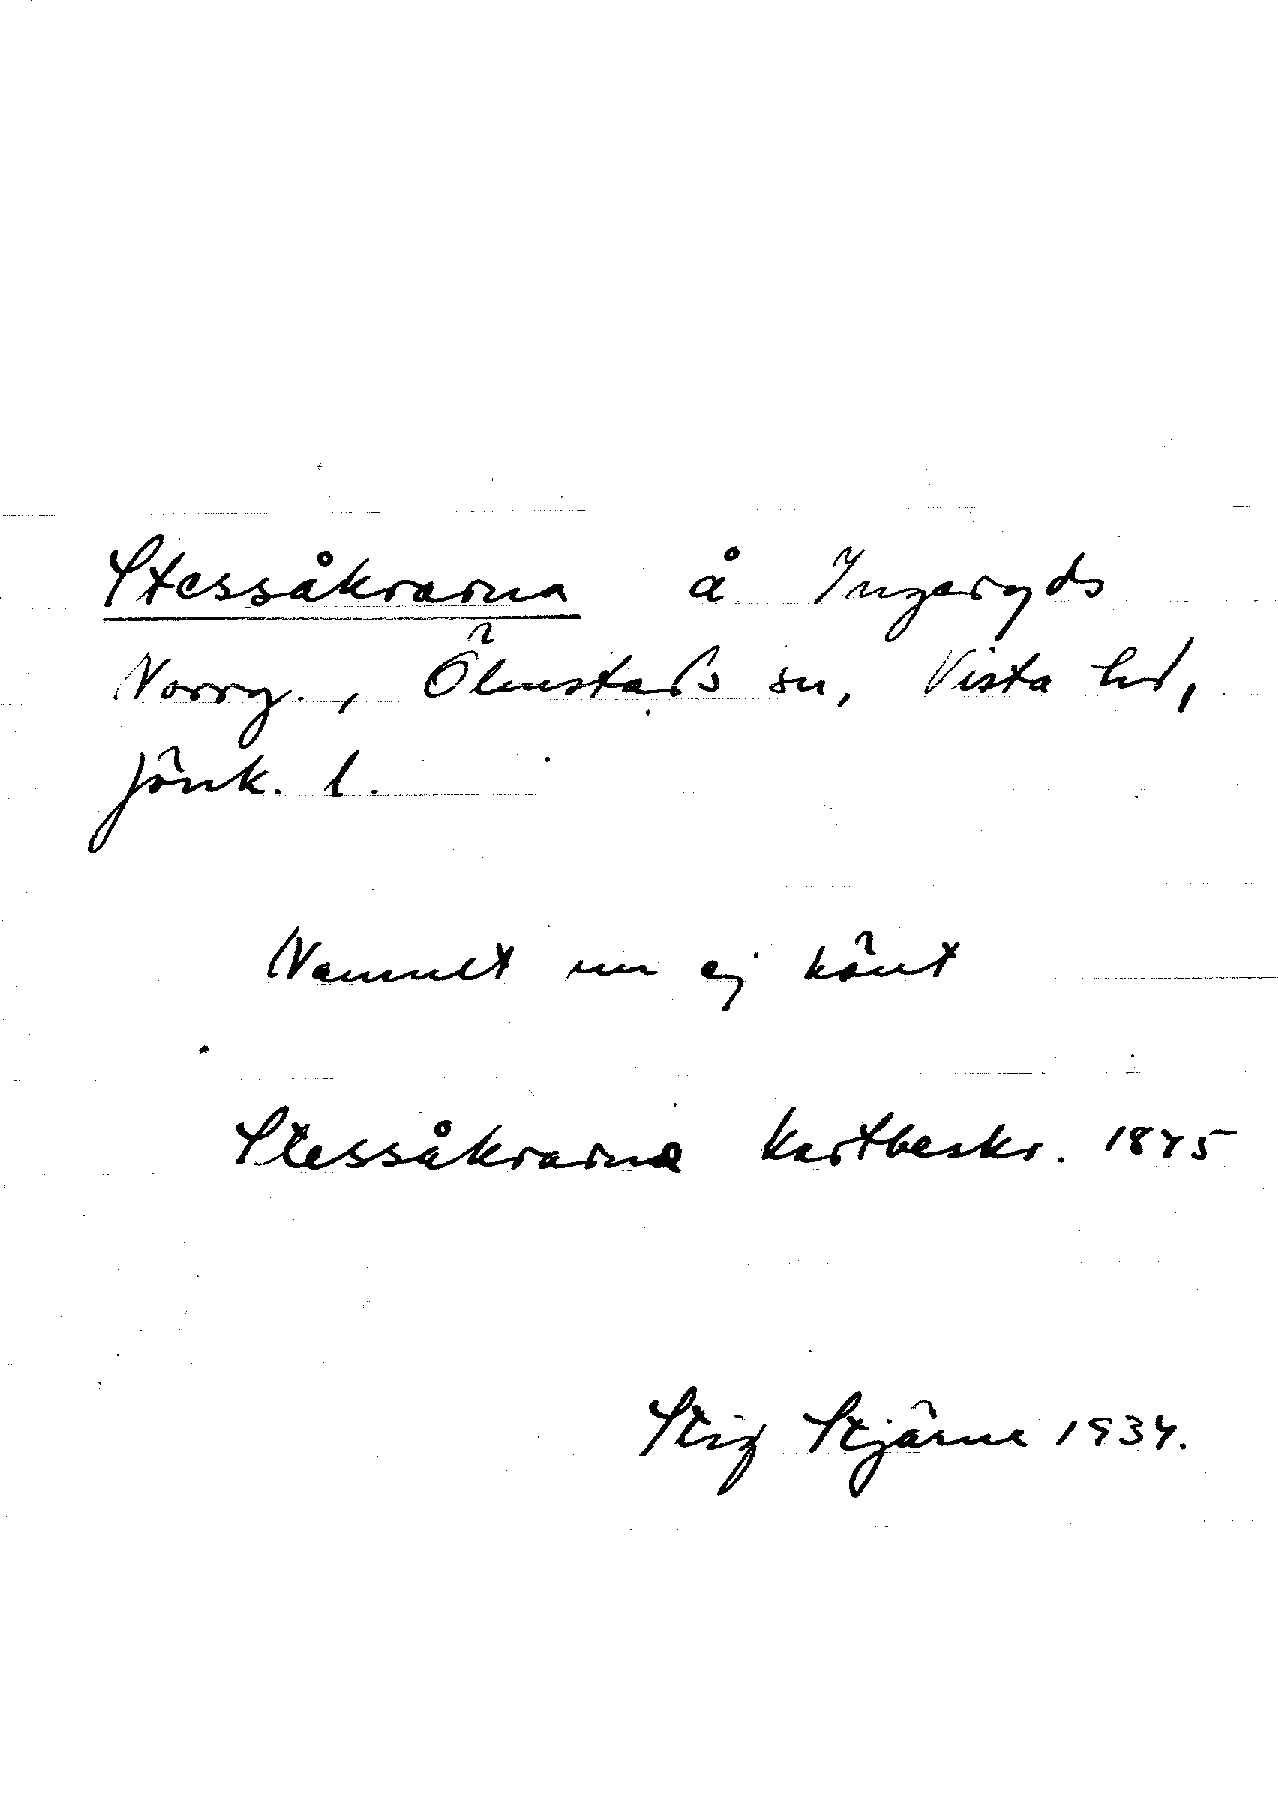 Stessåkrarna å Ingeryds
Norrg., Ölmstads sn, Vista hd,
Jönk. l.
Namnet nu ej känt
Stessåkrarne Kartbeskr. 1845
Stig Stjärne 1934.